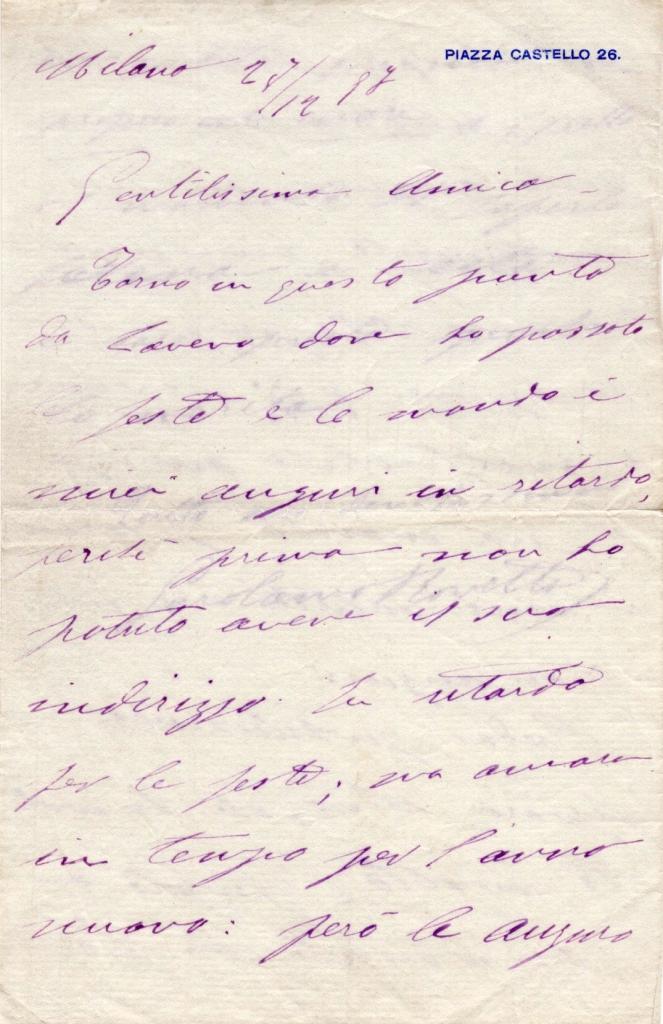 PIAZZA CASTELLO 26.
Milano 27/12 97
Gentilissima Amica
Torno in questo punto
da Laveno dove ho passato
le feste e le mando i
miei auguri in ritardo,
perchè prima non ho
potuto avere il suo
indirizzo. In ritardo
per le feste; ma ancora
in tempo per l'anno
nuovo: però le auguro